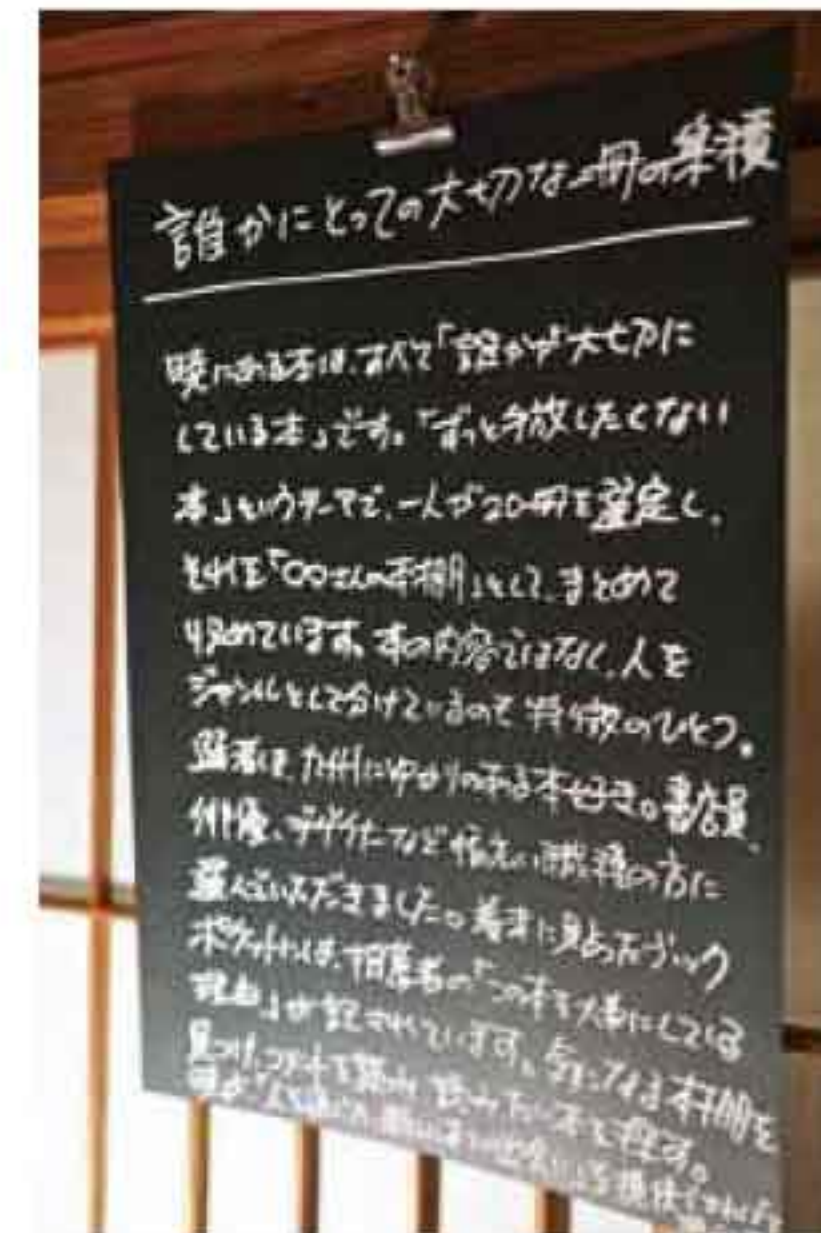 誰かにとっての大切な一冊の集積
暁にある本は、すべて「誰かが大切に
している本」です。「ずっと手放したくない
本」というテーマで、一人が20冊を選定し、
それを「○○さんの本棚」として、まとめて
収めています。本の内容ではなく、人を
ジャンルとして分けているのも特徴のひとつ。
選者は、九州にゆかりのある本好き。書店員、
俳優、デザイナーなど幅広い職種の方に
選んでいただきました。巻末に貼ったブック
ポケットには、推薦者の「この本を大事にしている
理由」が記されています。気になる本棚を
見つけ、カードを読み、読みたい本を探す。